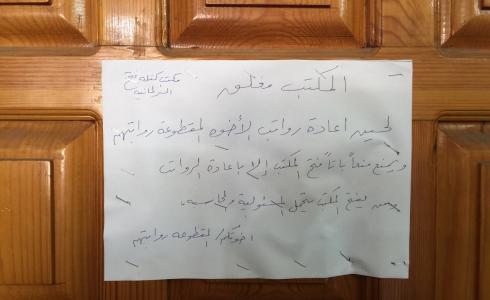 مكتب كتلة فتح
البرلمانية
المكتب مغلق
لحين اعادة رواتب الأخوه المقطوعة رواتبهم
ويمنع منعاً باتاً فتح المكتب إلا باعادة الرواتب
يفتح المكتب يتحمل المسئولية والمحاسبه.
اخوتكم/ المقطوعه رواتبهم